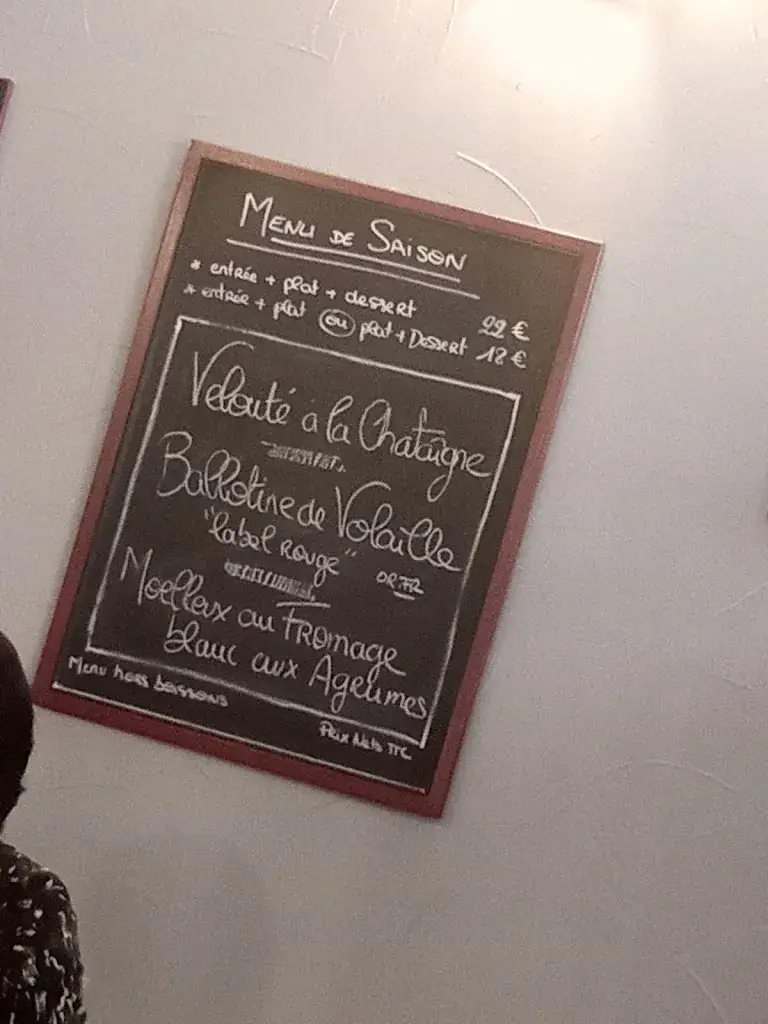 MENU DE SAISON
* entrée + plat + dessert 22 €
* entrée + plat ou plat + Dessert 18 €
Velouté à la Chataîgne
Ballotine de Volaille
"label ROUGE" OR.FR
Moelleux au FROMAGE
blanc aux Agrumes
Menu hors boissons
Prix Nets TTC